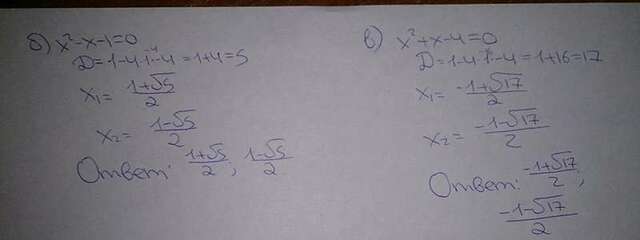 б) x²-x-1=0
D=1-4·1·-1=1+4=5
x₁= (1+√5)/2
x₂= (1-√5)/2
Ответ: (1+√5)/2, (1-√5)/2
в) x²+x-4=0
D=1-4·1·-4=1+16=17
x₁= (-1+√17)/2
x₂= (-1-√17)/2
Ответ: (-1+√17)/2;
(-1-√17)/2